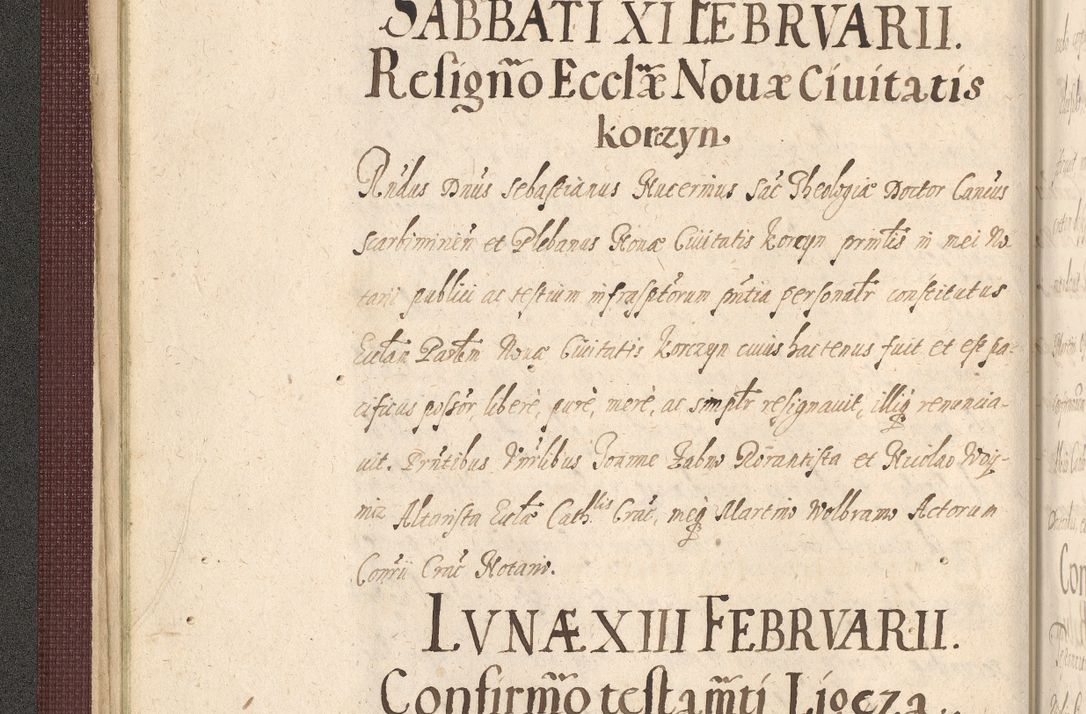 SABBATI XI FEBRVARII.
Resigño Ecclæ Nouæ Ciuitatis
korzyn.
Rñdus Dñus Sebastianus Nucerinus Sac̃ Theologiæ Doctor Canc̃us
Scarbimireñ et Plebanus Nouæ Ciuitatis Korczyn prñtis in mei No
tarii publici ac testium infrasptõrum pñtia personalr̃ constitutus
Ecclãm Parlẽm Nouæ Ciuitatis Korczyn cuius hactenus fuit et est pa-
cificus possõr liberè, purè, merè, ac simplr̃ resignauit, illiq̃ renuncia-
uit. Prñtibus Vñrlibus Joanne Zabno Rorantista et Nicolao Woy-
Altarista Ecclæ Cath.lis Crac̃, meq̃ Martino Wolbramo Actorum
Consrii Crac̃ Notario.
LVNÆ XIII FEBRVARII.
Confirm̃o testam̃ti Ligęza